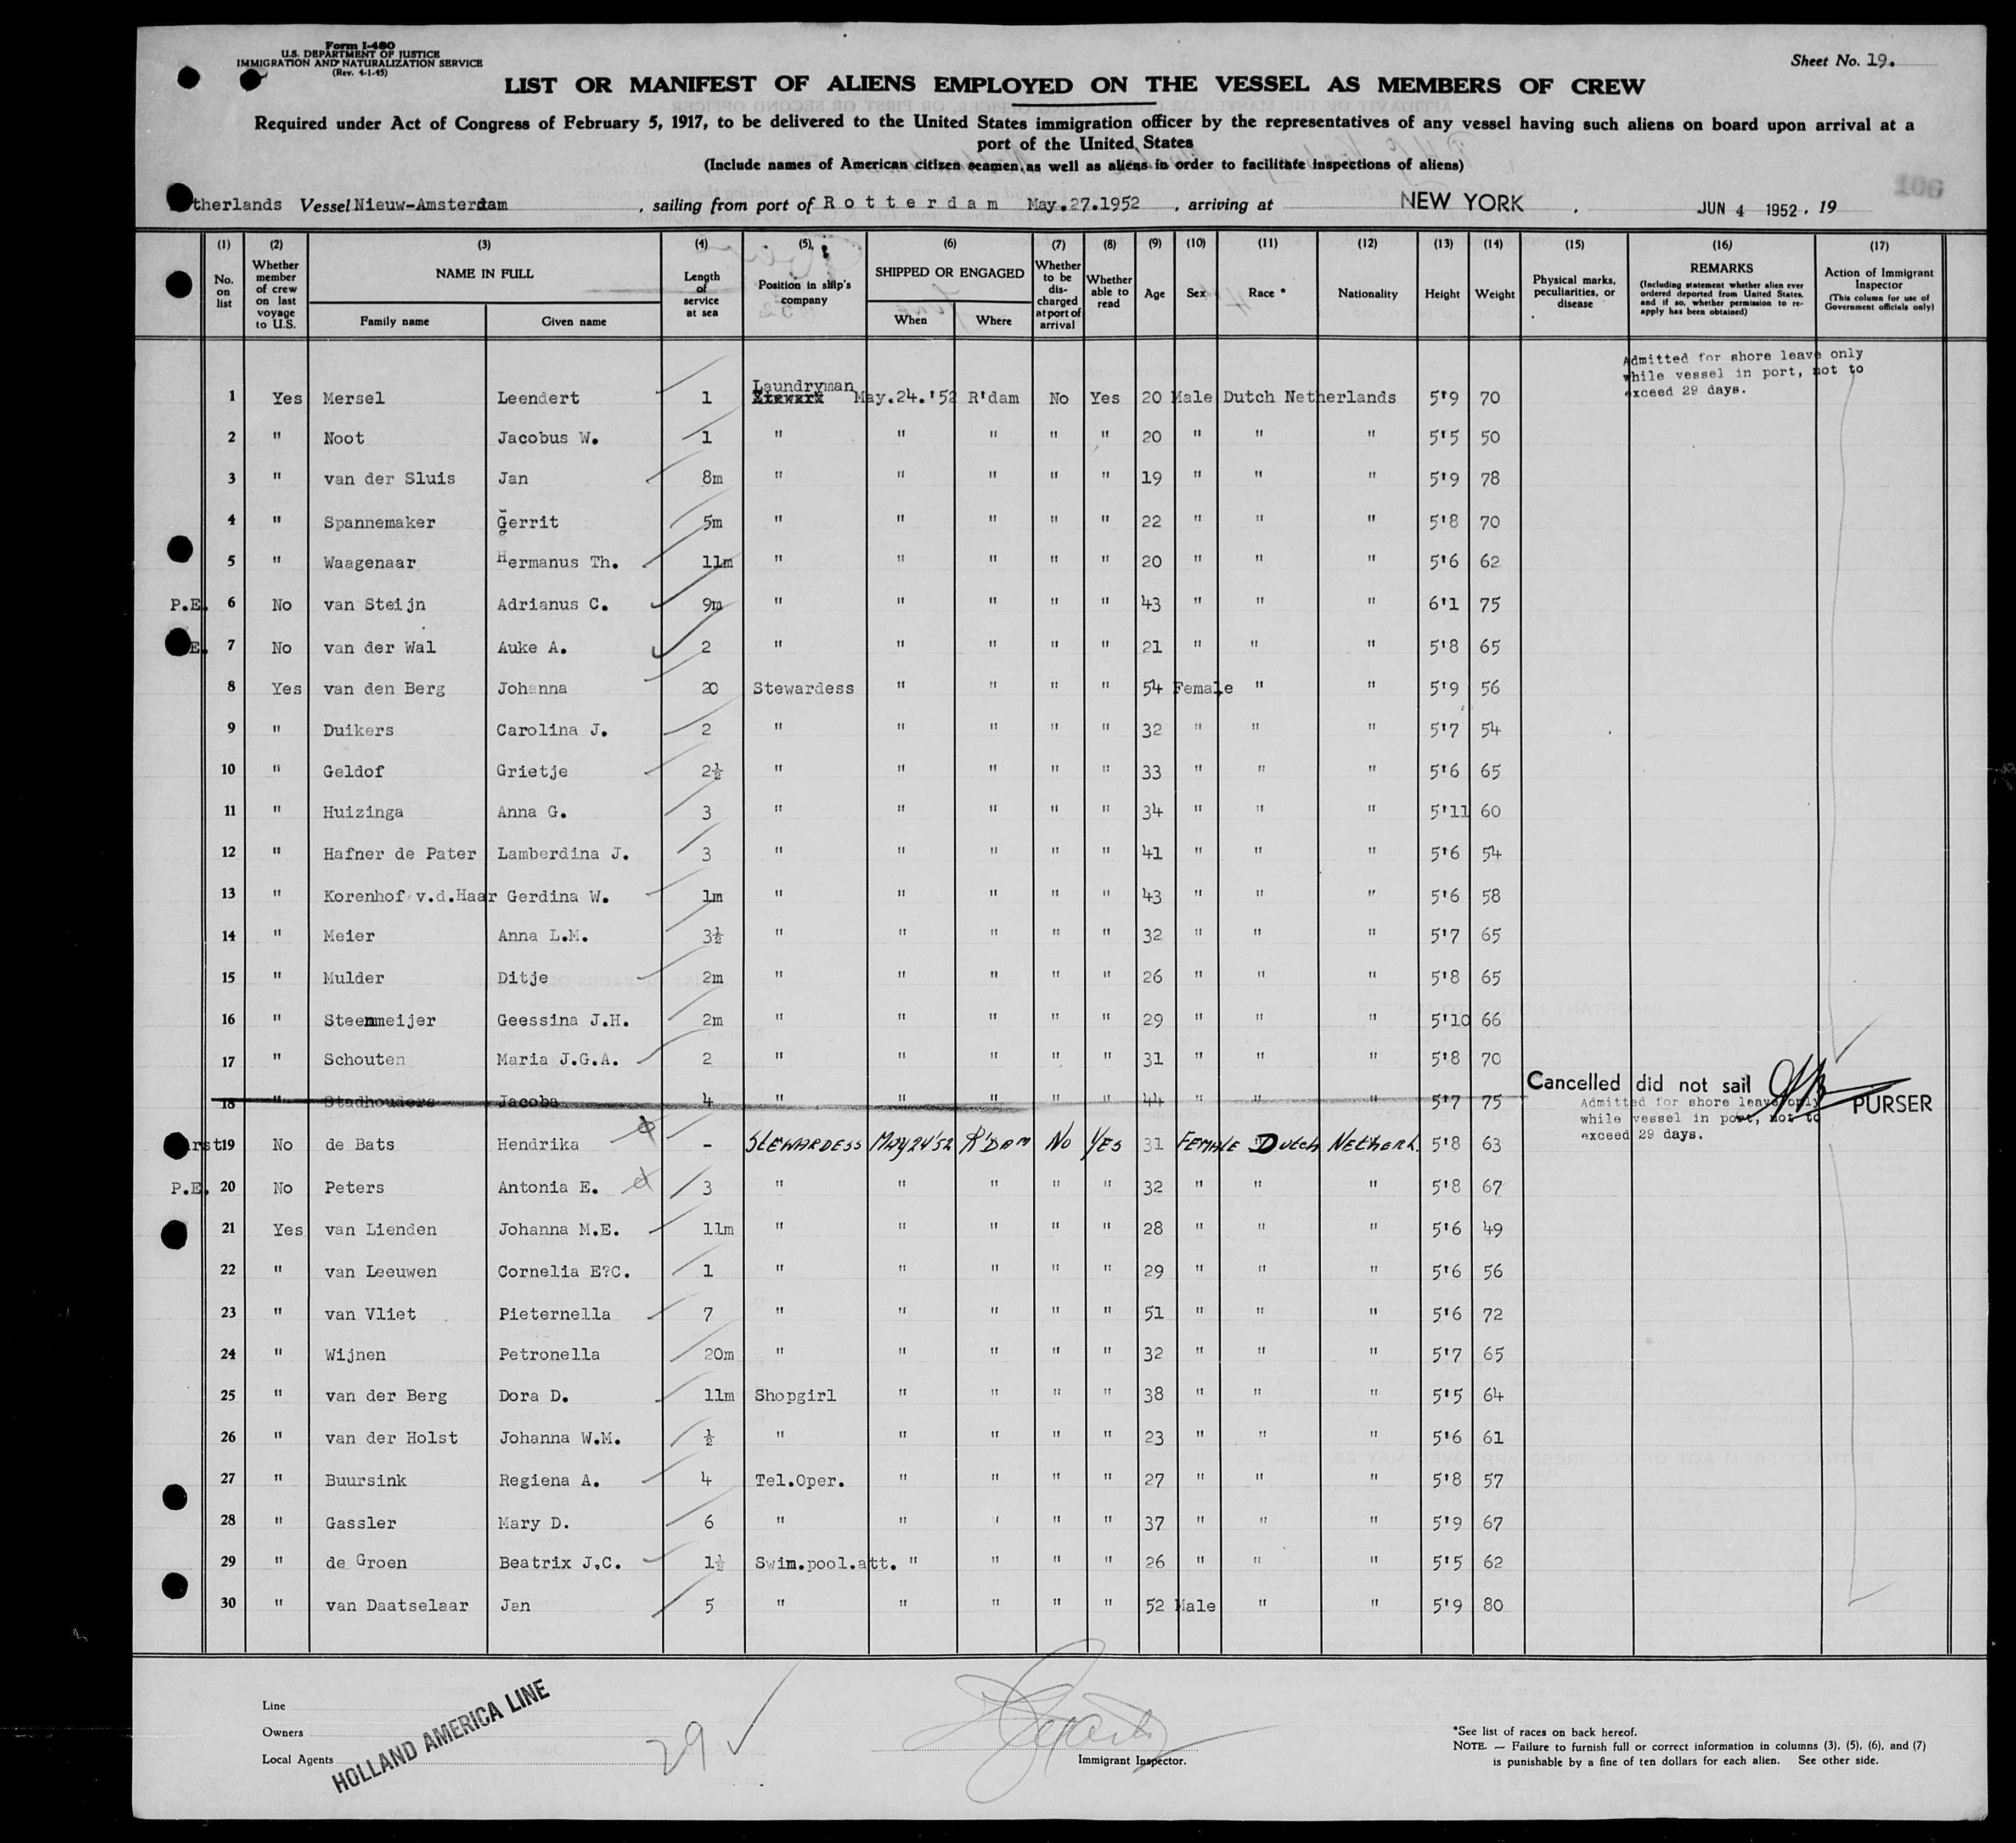 Form I-480
U.S. DEPARTMENT OF JUSTICE
IMMIGRATION AND NATURALIZATION SERVICE
(Rev. 4-1-45)
Sheet No. 19.
LIST OR MANIFEST OF ALIENS EMPLOYED ON THE VESSEL AS MEMBERS OF CREW
Required under Act of Congress of February 5, 1917, to be delivered to the United States immigration officer by the representatives of any vessel having such aliens on board upon arrival at a
port of the United States
(Include names of American citizen seamen as well as aliens in order to facilitate inspections of aliens)
106
therlands Vessel Nieuw-Amsterdam, sailing from port of Rotterdam May.27.1952, arriving at NEW YORK, JUN 4 1952, 19
(1) (2) (3) (4) (5) (6) (7) (8) (9) (10) (11) (12) (13) (14) (15) (16) (17)
No. on list | Whether member of crew on last voyage to U.S. | NAME IN FULL Family name Given name | Length of service at sea | Position in ship's company | SHIPPED OR ENGAGED When Where | Whether to be discharged at port of arrival | Whether able to read | Age | Sex | Race * | Nationality | Height | Weight | Physical marks, peculiarities, or disease | REMARKS (Including statement whether alien ever ordered deported from United States, and if so, whether permission to re-apply has been obtained) | Action of Immigrant Inspector (This column for use of Government officials only)
Admitted for shore leave only
while vessel in port, not to
exceed 29 days.
1 Yes Mersel Leendert 1 Laundryman May.24.'52 R'dam No Yes 20 Male Dutch Netherlands 5'9 70
2 " Noot Jacobus W. 1 " " " " " 20 " " " 5'5 50
3 " van der Sluis Jan 8m " " " " " 19 " " " 5'9 78
4 " Spannemaker Gerrit 5m " " " " " 22 " " " 5'8 70
5 " Waagenaar Hermanus Th. 11m " " " " " 20 " " " 5'6 62
P.E. 6 No van Steijn Adrianus C. 9m " " " " " 43 " " " 6'1 75
E. 7 No van der Wal Auke A. 2 " " " " " 21 " " " 5'8 65
8 Yes van den Berg Johanna 20 Stewardess " " " " 54 Female " " 5'9 56
9 " Duikers Carolina J. 2 " " " " " 32 " " " 5'7 54
10 " Geldof Grietje 2½ " " " " " 33 " " " 5'6 65
11 " Huizinga Anna G. 3 " " " " " 34 " " " 5'11 60
12 " Hafner de Pater Lamberdina J. 3 " " " " " 41 " " " 5'6 54
13 " Korenhof v.d.Haar Gerdina W. 1m " " " " " 43 " " " 5'6 58
14 " Meier Anna L.M. 3½ " " " " " 32 " " " 5'7 65
15 " Mulder Ditje 2m " " " " " 26 " " " 5'8 65
16 " Steenmeijer Geessina J.H. 2m " " " " " 29 " " " 5'10 66
17 " Schouten Maria J.G.A. 2 " " " " " 31 " " " 5'8 70
Cancelled did not sail
18 " Stadhouders Jacoba 4 " " " " " 44 " " " 5'7 75
PURSER
Admitted for shore leave only
while vessel in port, not to
exceed 29 days.
rst 19 No de Bats Hendrika - STEWARDESS MAY 24'52 R'DAM No YES 31 FEMALE Dutch Netherl. 5'8 63
P.E. 20 No Peters Antonia E. 3 " " " " " 32 " " " 5'8 67
21 Yes van Lienden Johanna M.E. 11m " " " " " 28 " " " 5'6 49
22 " van Leeuwen Cornelia E?C. 1 " " " " " 29 " " " 5'6 56
23 " van Vliet Pieternella 7 " " " " " 51 " " " 5'6 72
24 " Wijnen Petronella 20m " " " " " 32 " " " 5'7 65
25 " van der Berg Dora D. 11m Shopgirl " " " " 38 " " " 5'5 64
26 " van der Holst Johanna W.M. ½ " " " " " 23 " " " 5'6 61
27 " Buursink Regiena A. 4 Tel.Oper. " " " " 27 " " " 5'8 57
28 " Gassler Mary D. 6 " " " " " 37 " " " 5'9 67
29 " de Groen Beatrix J.C. 1½ Swim.pool.att. " " " " 26 " " " 5'5 62
30 " van Daatselaar Jan 5 " " " " " 52 Male " " 5'9 80
Line
Owners
Local Agents
HOLLAND AMERICA LINE
29
Immigrant Inspector.
*See list of races on back hereof.
NOTE. — Failure to furnish full or correct information in columns (3), (5), (6), and (7)
is punishable by a fine of ten dollars for each alien. See other side.